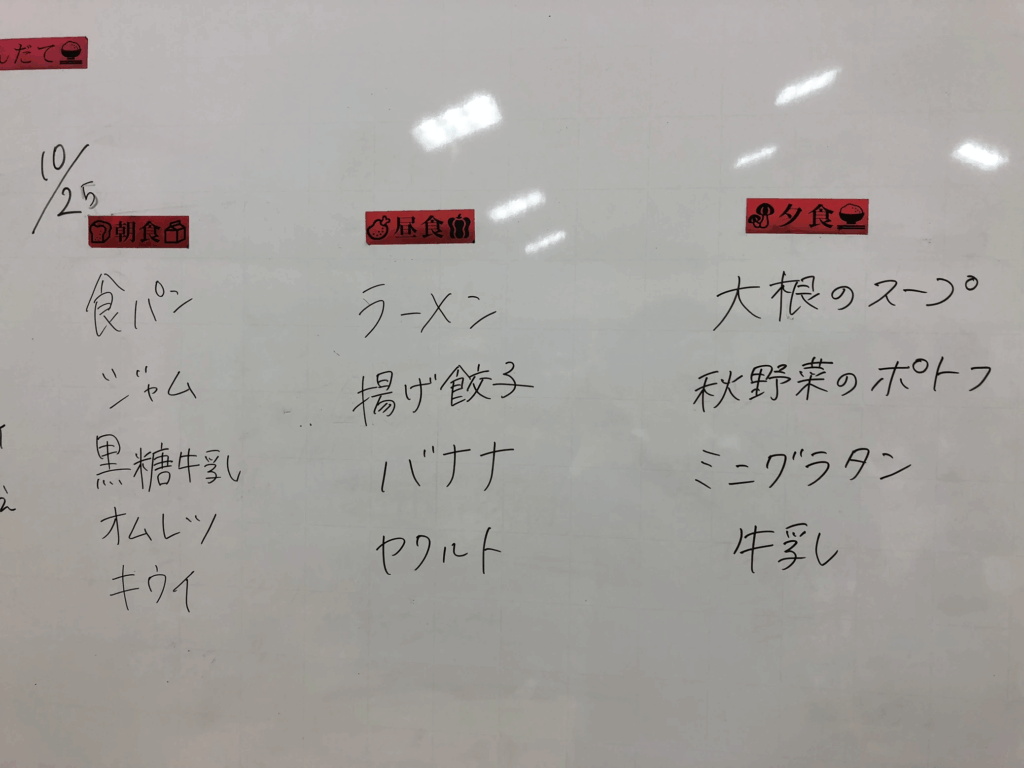 んだて
10/25
朝食
食パン
ジャム
黒糖牛乳
オムレツ
キウイ
昼食
ラーメン
揚げ餃子
バナナ
ヤクルト
夕食
大根のスープ
秋野菜のポトフ
ミニグラタン
牛乳